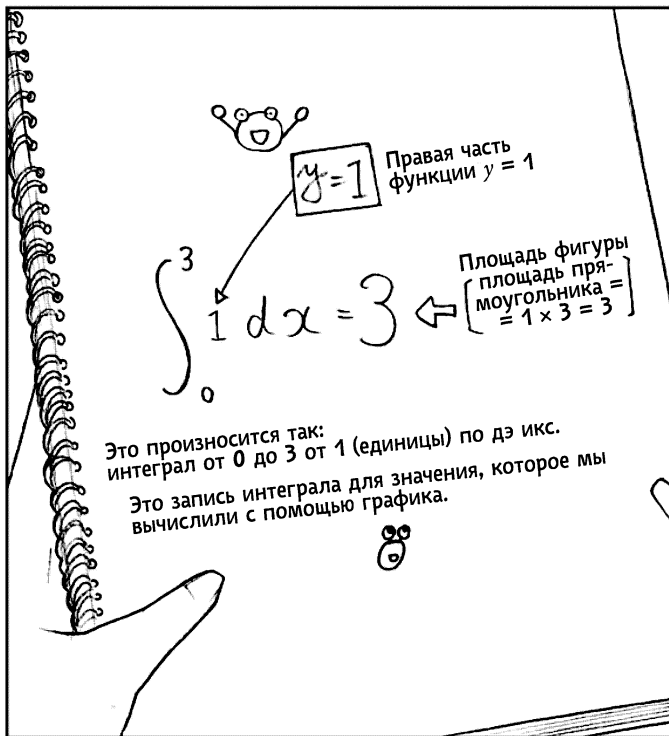 y = 1
Правая часть
функции y = 1
Площадь фигуры
площадь пря-
моугольника =
= 1 × 3 = 3
∫₀³ 1 dx = 3
Это произносится так:
интеграл от 0 до 3 от 1 (единицы) по дэ икс.
Это запись интеграла для значения, которое мы
вычислили с помощью графика.